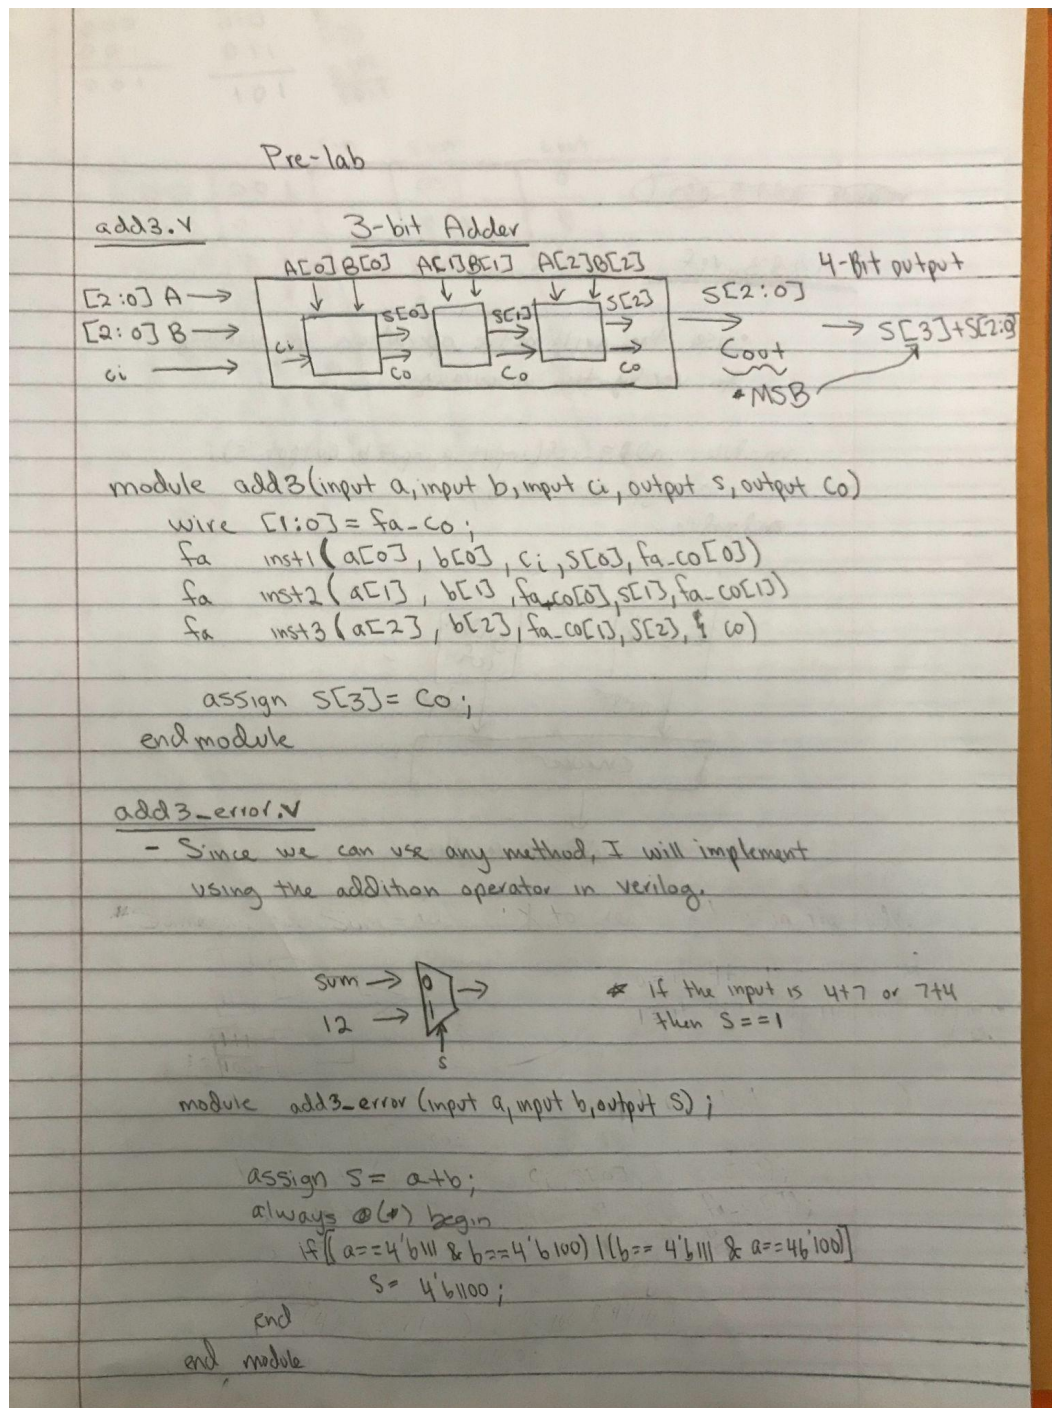 Pre-lab
add3.v
3-bit Adder
A[0] B[0] A[1] B[1] A[2] B[2]
4-Bit output
[2:0] A
[2:0] B
ci
ci
S[0]
Co
S[1]
Co
S[2]
Co
S[2:0]
Cout
*MSB
S[3]+S[2:0]
module add3(input a, input b, input ci, output s, output co)
wire [1:0] = fa_co;
fa inst1(a[0], b[0], ci, s[0], fa_co[0])
fa inst2(a[1], b[1], fa_co[0], s[1], fa_co[1])
fa inst3(a[2], b[2], fa_co[1], s[2], co)
assign s[3] = co;
endmodule
add3_error.v
- Since we can use any method, I will implement
using the addition operator in verilog.
sum
12
0
1
s
* if the input is 4+7 or 7+4
then s==1
module add3_error (input a, input b, output s);
assign s = a+b;
always @(*) begin
if[(a==4'b111 & b==4'b100) | (b==4'b111 & a==4b'100)]
s = 4'b1100;
end
end module